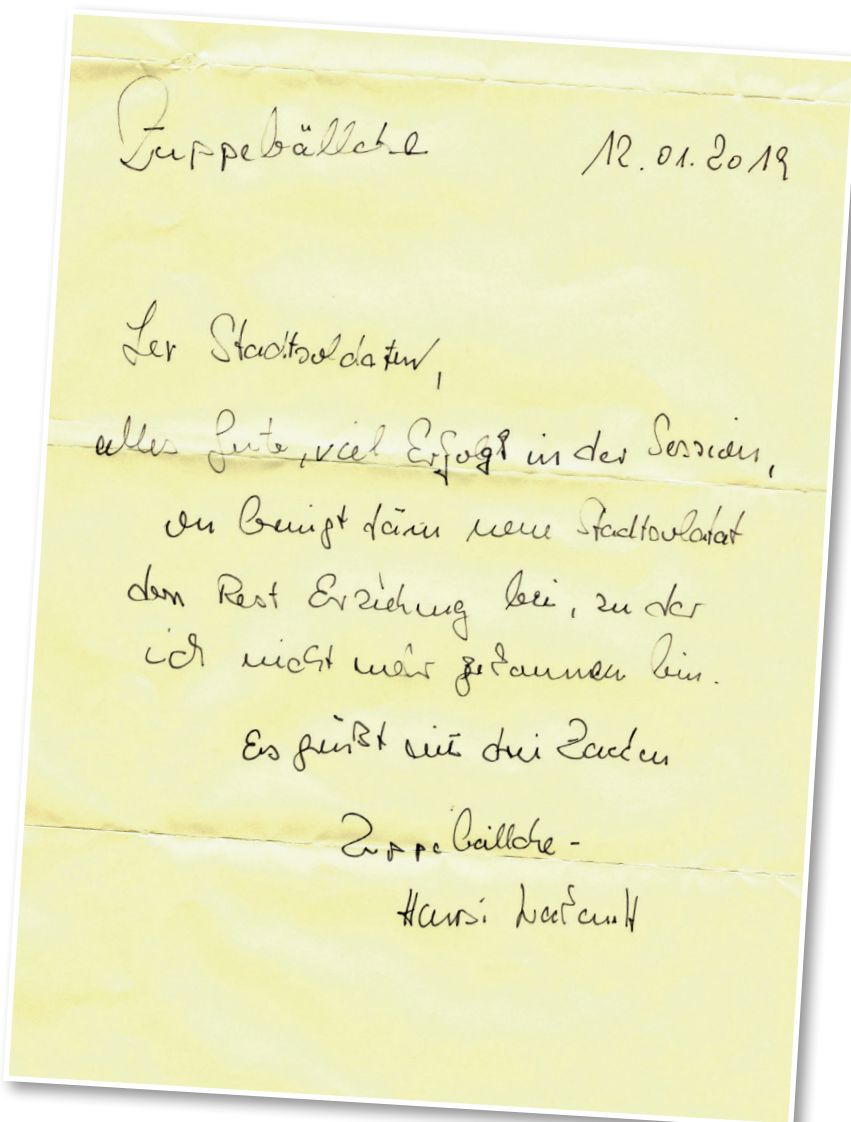 Zuppebällche 12.01.2019
Ler Stadtsoldaten,
alles Gute, viel Erfolg in der Session,
on bringt däm neue Stadtsoldat
den Rest Erziehung bei, zu der
ich nicht mehr gekommen bin.
Es grüßt mit drei Zacken
Zuppebällche -
Hansi